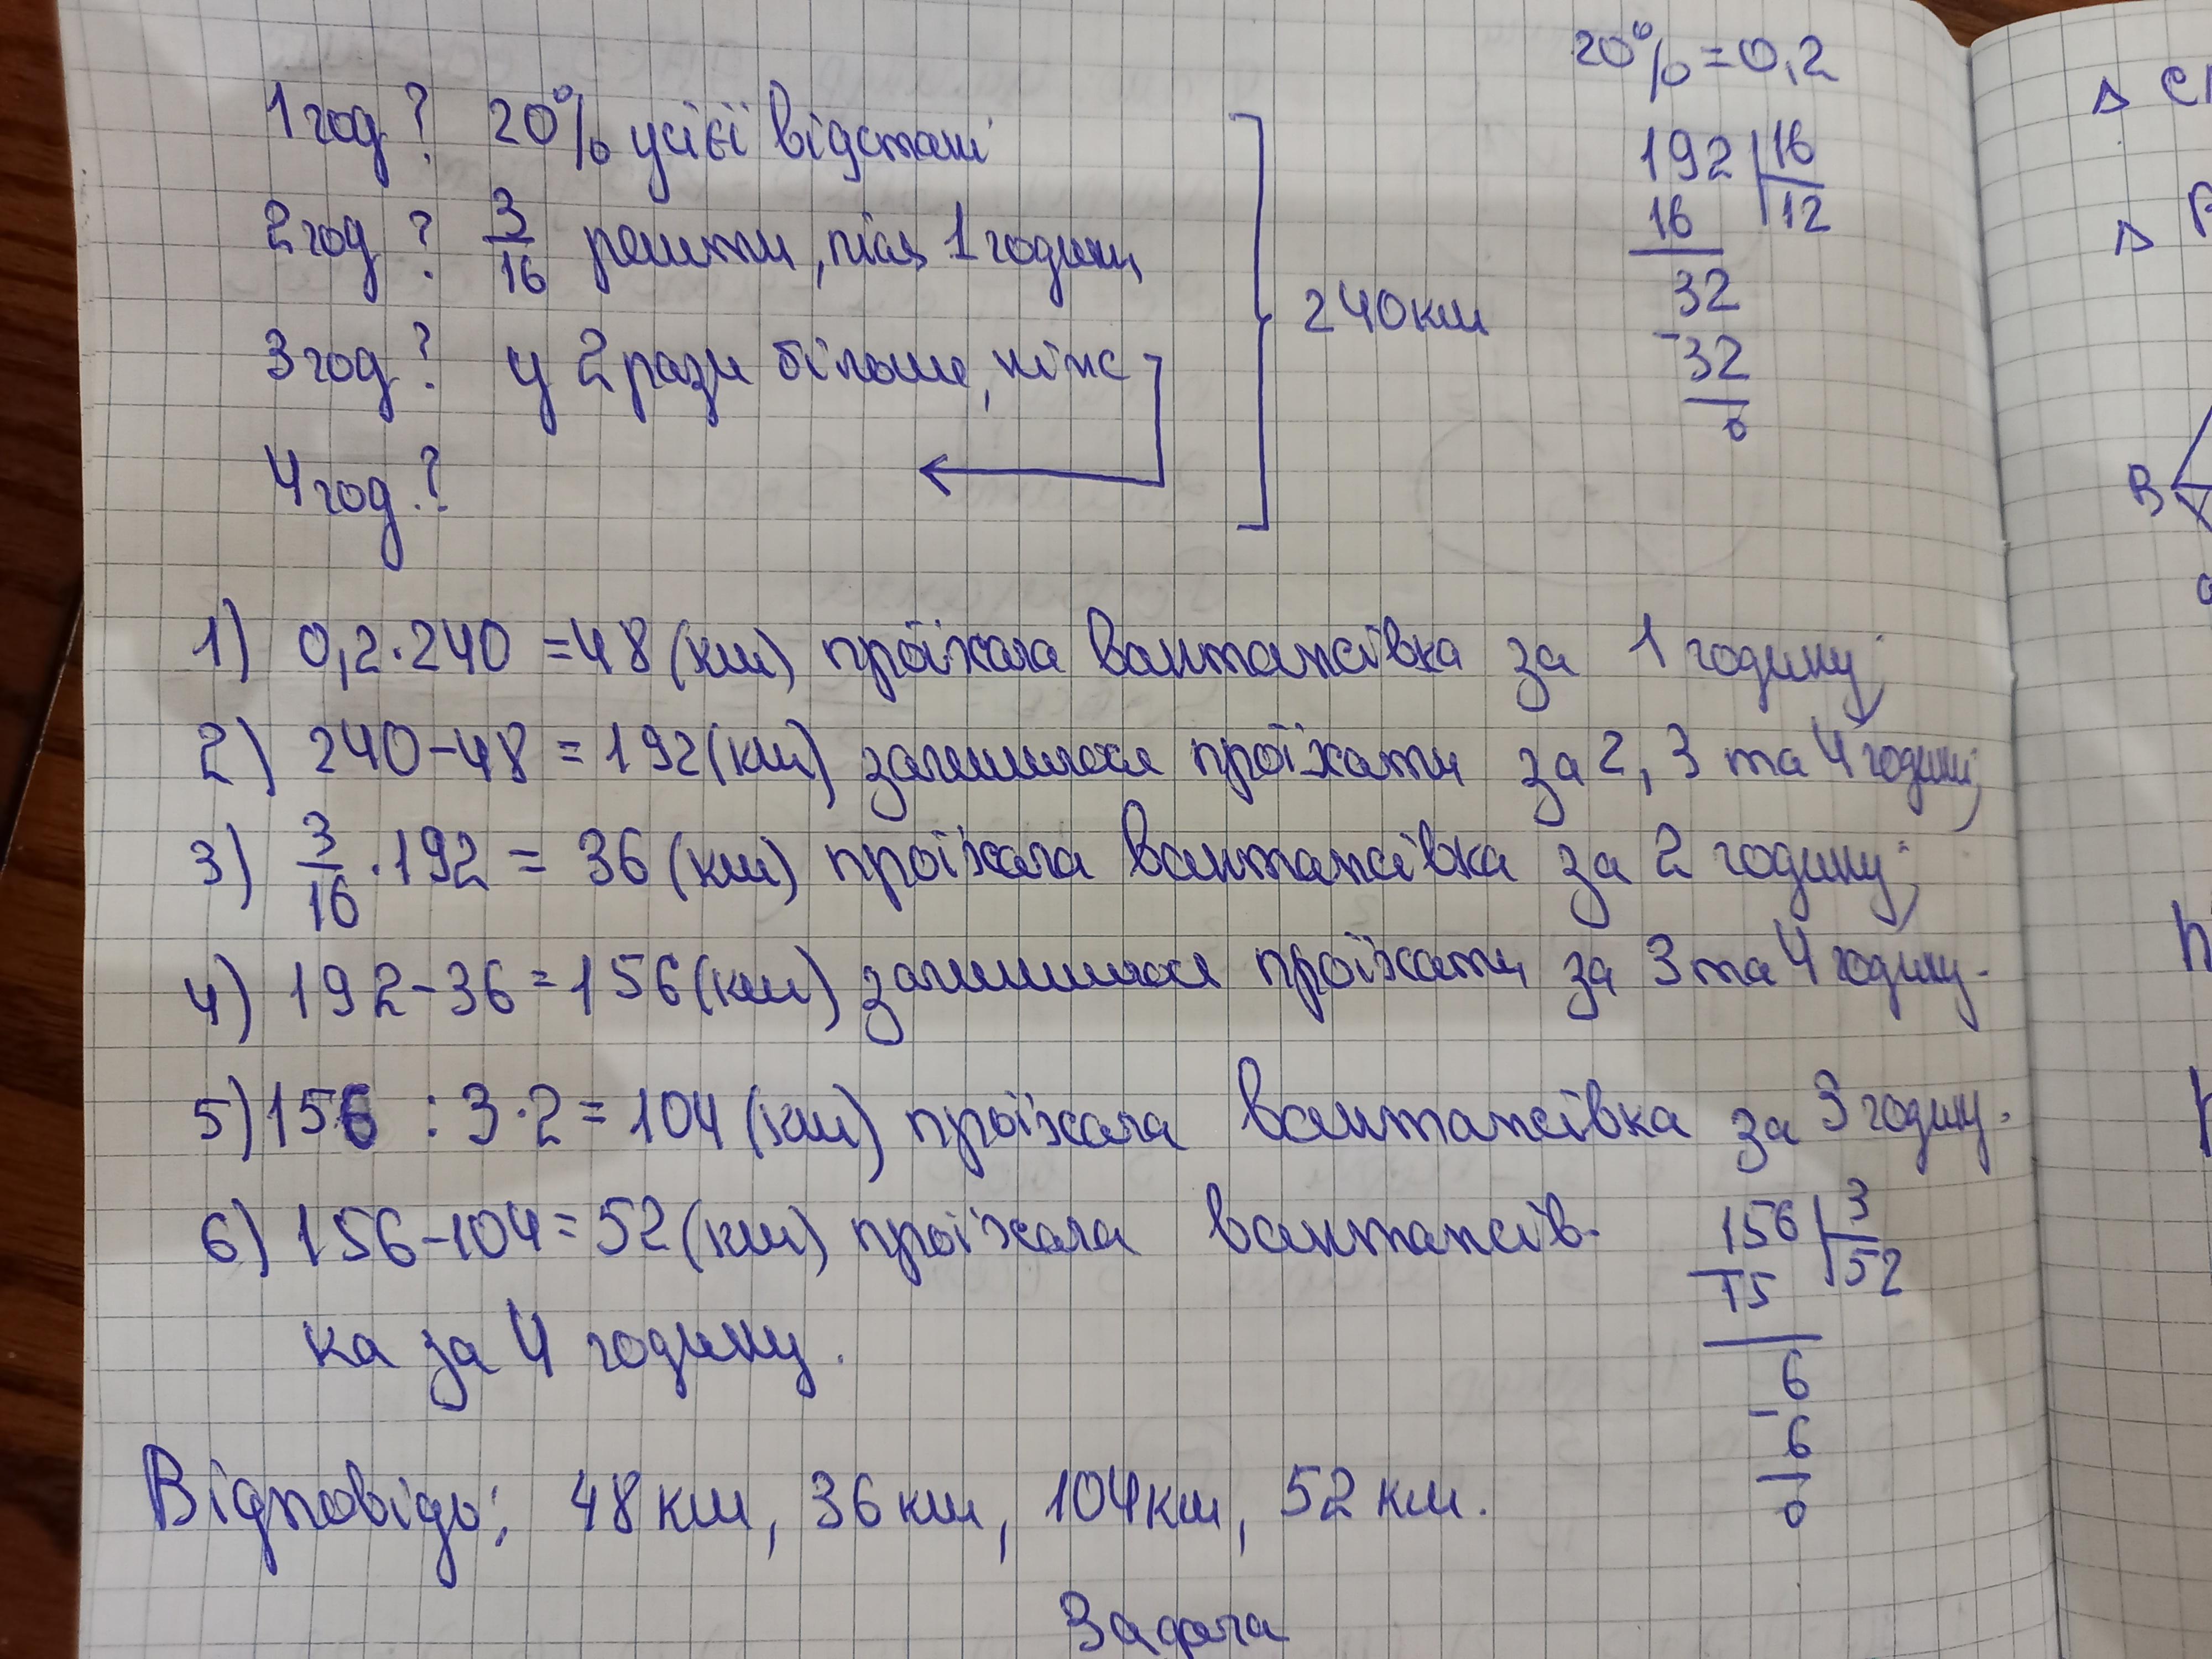 20% = 0,2
1 год ? 20% усієї відстані
2 год ? 3/16 решти, після 1 години
3 год ? у 2 рази більше, ніж
4 год ?
240 км
192 | 16
16 | 12
32
- 32
0
1) 0,2 · 240 = 48 (км) проїхала вантажівка за 1 годину;
2) 240 - 48 = 192 (км) залишилося проїхати за 2, 3 та 4 години;
3) 3/16 · 192 = 36 (км) проїхала вантажівка за 2 годину;
4) 192 - 36 = 156 (км) залишилося проїхати за 3 та 4 годину.
5) 156 : 3 · 2 = 104 (км) проїхала вантажівка за 3 годину.
6) 156 - 104 = 52 (км) проїхала вантажів-
ка за 4 годину.
156 | 3
- 15 | 52
6
- 6
0
Відповідь: 48 км, 36 км, 104 км, 52 км.
Задача
В